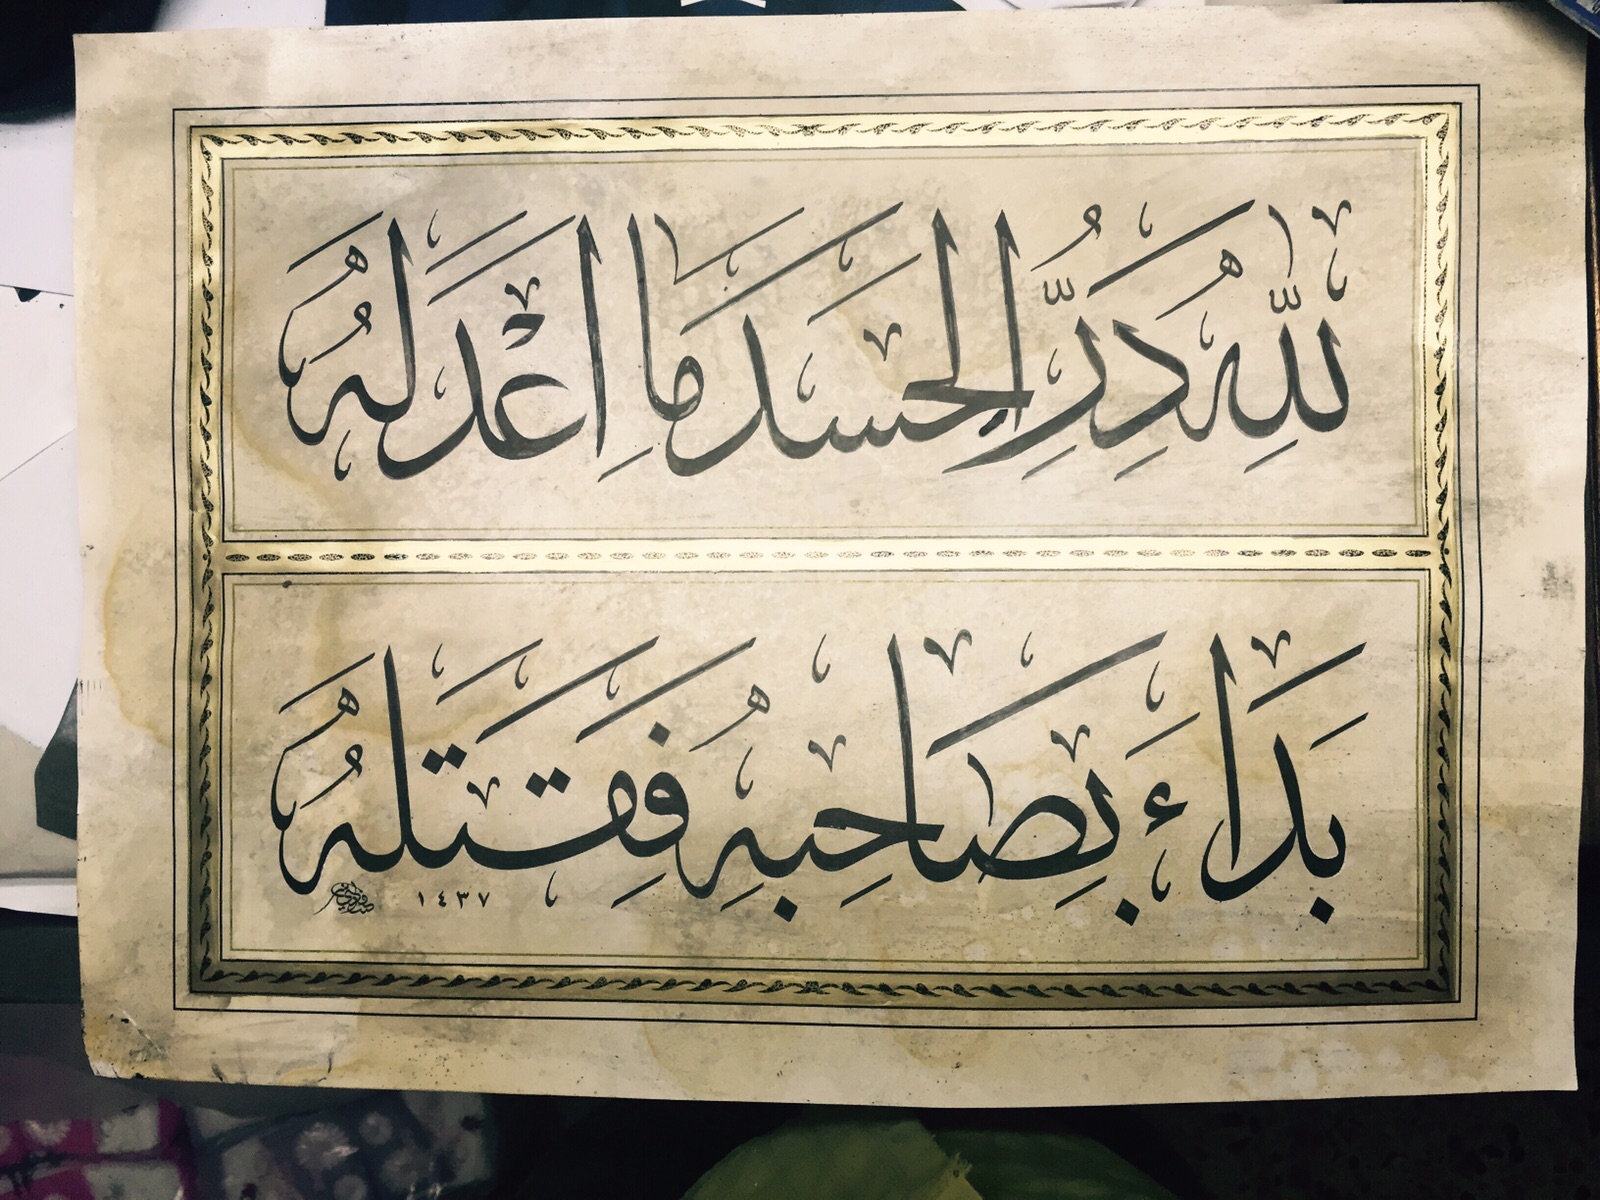 لِلّٰهِ دَرُّ الْحَسَدِ مَا اَعْدَلَهُ
بَدَاَءَ بِصَاحِبِهِ فَقَتَلَهُ
١٤٣٧